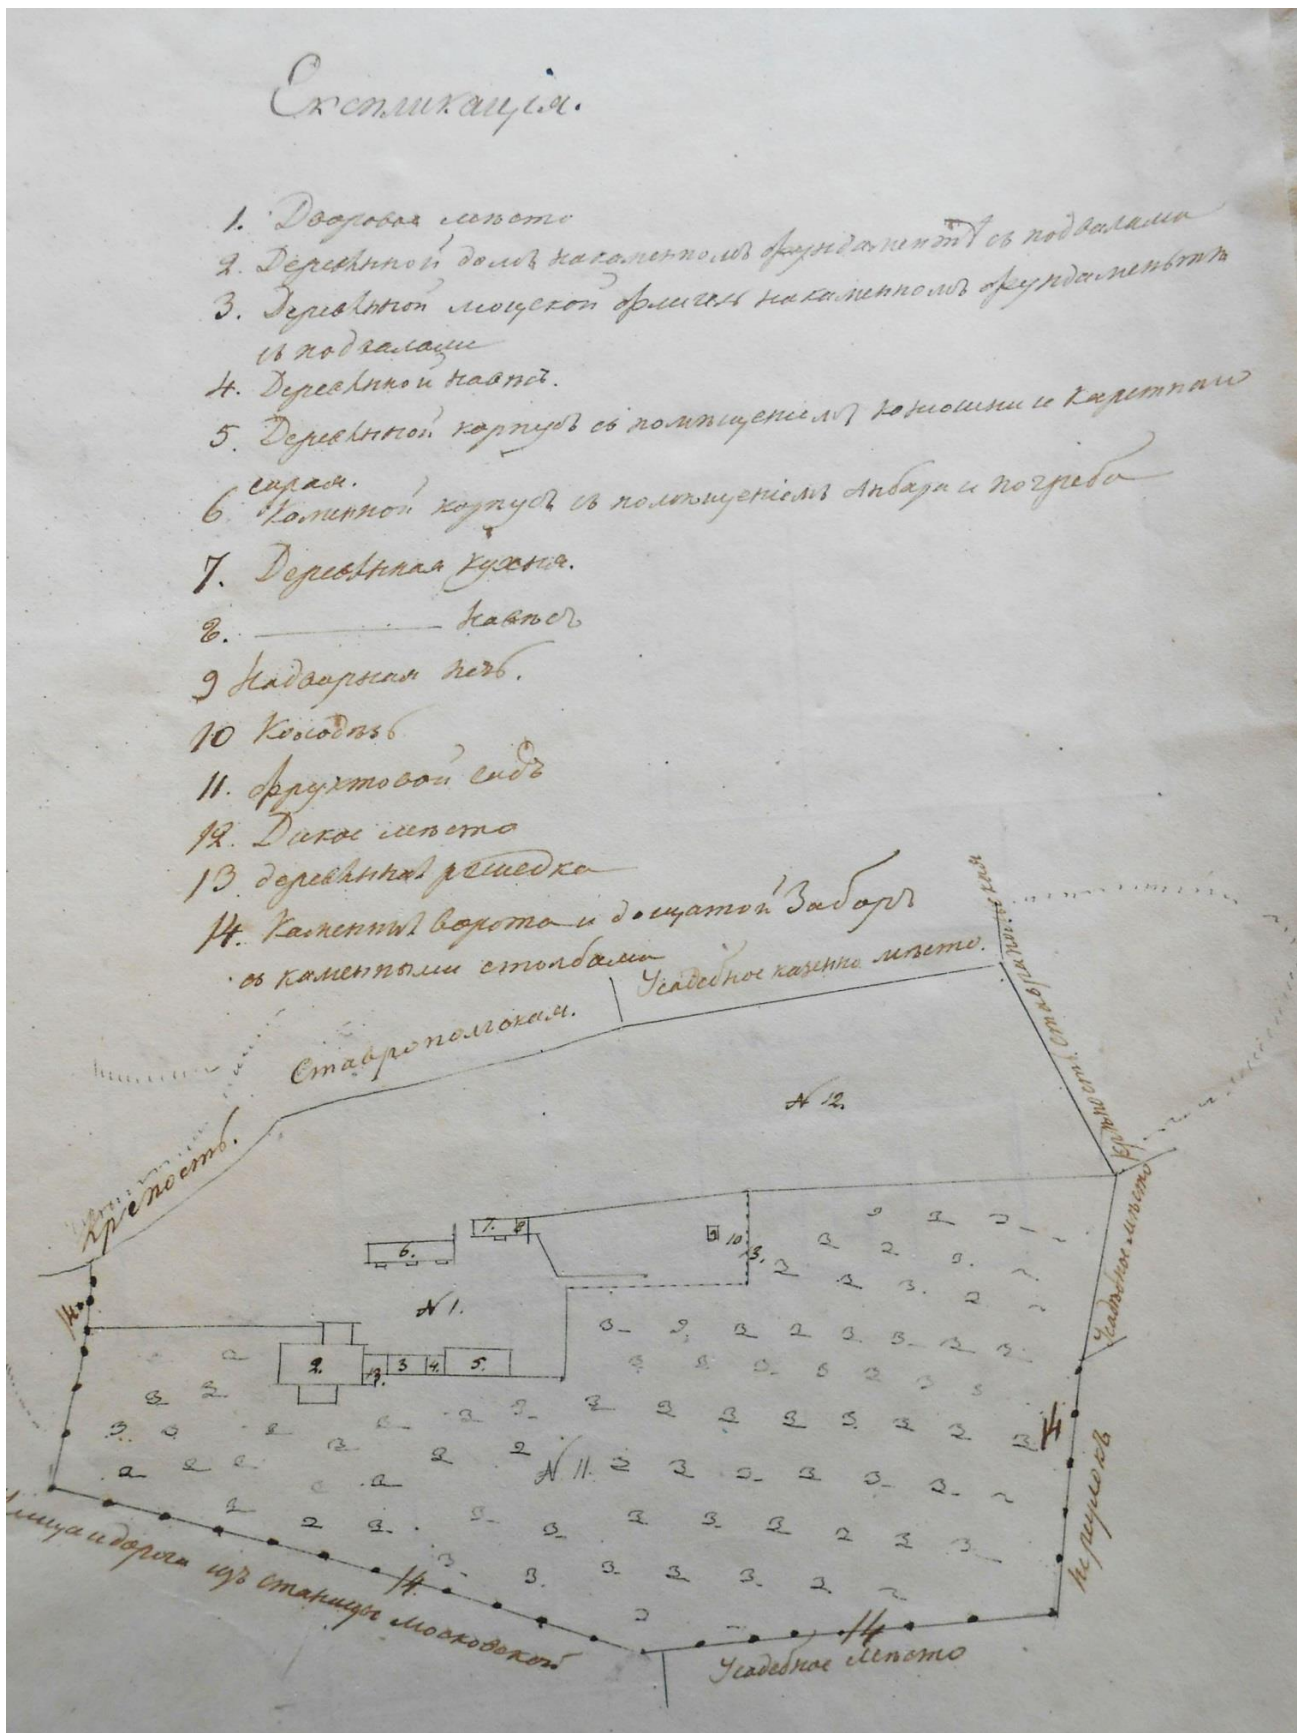 Експликація.
1. Дворовое мѣсто
2. Деревѣнной домъ накаменномъ фундаментѣ съ подвалами
3. Деревѣнной флигель накаменномъ фундаментѣ
съ подвалами
4. Деревѣнной навѣсъ.
5. Деревѣнной корпусъ съ помѣщеніемъ конюшни и каретнаго
сарая.
6 Каменной корпусъ съ помѣщеніемъ Анбара и погреба
7. Деревѣнная кухня.
8. ——— навѣсъ
9 Надворная печь.
10 Колодѣзь
11. фруктовой садъ
12. Дикое мѣсто
13 деревѣнная решедка
14. Каменныѣ ворота и дощатой Заборъ
съ каменными столбами
Усадебное казенно мѣсто.
Ставропольская.
Крѣпость Ставропольская
N 12.
Крепость.
7. 8
9 10
13.
6.
N 1.
14
Усадебное мѣсто
2. 13. 3 4. 5.
14
N 11.
переулокъ
Улица и дорога изъ станицы Московской
14.
14
Усадебное мѣсто